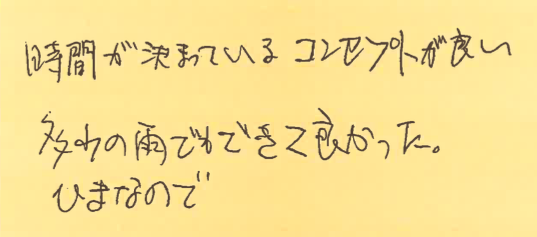 時間が決まっている コンセプトが良い
多少の雨でもできて良かった。
ひまなので